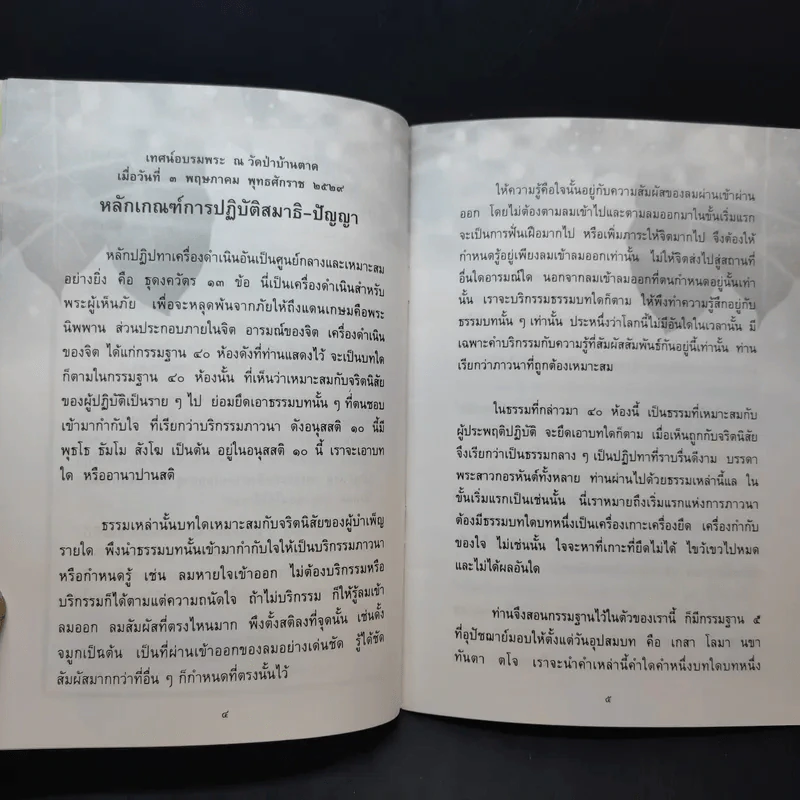 เทศน์อบรมพระ ณ วัดป่าบ้านตาด
เมื่อวันที่ ๓ พฤษภาคม พุทธศักราช ๒๕๒๙
หลักเกณฑ์การปฏิบัติสมาธิ-ปัญญา
หลักปฏิปทาเครื่องดำเนินอันเป็นศูนย์กลางและเหมาะสม
อย่างยิ่ง คือ ธุดงควัตร ๑๓ ข้อ นี่เป็นเครื่องดำเนินสำหรับ
พระผู้เห็นภัย เพื่อจะหลุดพ้นจากภัยให้ถึงแดนเกษมคือพระ
นิพพาน ส่วนประกอบภายในจิต อารมณ์ของจิต เครื่องดำเนิน
ของจิต ได้แก่กรรมฐาน ๔๐ ห้องดังที่ท่านแสดงไว้ จะเป็นบทใด
ก็ตามในกรรมฐาน ๔๐ ห้องนั้น ที่เห็นว่าเหมาะสมกับจริตนิสัย
ของผู้ปฏิบัติเป็นราย ๆ ไป ย่อมยึดเอาธรรมบทนั้น ๆ ที่ตนชอบ
เข้ามากำกับใจ ที่เรียกว่าบริกรรมภาวนา ดังอนุสสติ ๑๐ นี้มี
พุทโธ ธัมโม สังโฆ เป็นต้น อยู่ในอนุสสติ ๑๐ นี้ เราจะเอาบท
ใด หรืออานาปานสติ
ธรรมเหล่านั้นบทใดเหมาะสมกับจริตนิสัยของผู้บำเพ็ญ
รายใด พึงนำธรรมบทนั้นเข้ามากำกับใจให้เป็นบริกรรมภาวนา
หรือกำหนดรู้ เช่น ลมหายใจเข้าออก ไม่ต้องบริกรรมหรือ
บริกรรมก็ได้ตามแต่ความถนัดใจ ถ้าไม่บริกรรม ก็ให้รู้ลมเข้า
ลมออก ลมสัมผัสที่ตรงไหนมาก พึงตั้งสติลงที่จุดนั้น เช่นดั้ง
จมูกเป็นต้น เป็นที่ผ่านเข้าออกของลมอย่างเด่นชัด รู้ได้ชัด
สัมผัสมากกว่าที่อื่น ๆ ก็กำหนดที่ตรงนั้นไว้
๔
ให้ความรู้คือใจนั้นอยู่กับความสัมผัสของลมผ่านเข้าผ่าน
ออก โดยไม่ต้องตามลมเข้าไปและตามลมออกมาในขั้นเริ่มแรก
จะเป็นการฟั่นเฝือมากไป หรือเพิ่มภาระให้จิตมากไป จึงต้องให้
กำหนดรู้อยู่เพียงลมเข้าลมออกเท่านั้น ไม่ให้จิตส่งไปสู่สถานที่
อื่นใดอารมณ์ใด นอกจากลมเข้าลมออกที่ตนกำหนดอยู่นั้นเท่า
นั้น เราจะบริกรรมธรรมบทใดก็ตาม ให้พึงทำความรู้สึกอยู่กับ
ธรรมบทนั้น ๆ เท่านั้น ประหนึ่งว่าโลกนี้ไม่มีอันใดในเวลานั้น มี
เฉพาะคำบริกรรมกับความรู้ที่สัมผัสสัมพันธ์กันอยู่นี้เท่านั้น ท่าน
เรียกว่าภาวนาที่ถูกต้องเหมาะสม
ในธรรมที่กล่าวมา ๔๐ ห้องนี้ เป็นธรรมที่เหมาะสมกับ
ผู้ประพฤติปฏิบัติ จะยึดเอาบทใดก็ตาม เมื่อเห็นถูกกับจริตนิสัย
จึงเรียกว่าเป็นธรรมกลาง ๆ เป็นปฏิปทาที่ราบรื่นดีงาม บรรดา
พระสาวกอรหันต์ทั้งหลาย ท่านผ่านไปด้วยธรรมเหล่านี้แล ใน
ขั้นเริ่มแรกเป็นเช่นนั้น นี่เราหมายถึงเริ่มแรกแห่งการภาวนา
ต้องมีธรรมบทใดบทหนึ่งเป็นเครื่องเกาะเครื่องยึด เครื่องกำกับ
ของใจ ไม่เช่นนั้น ใจจะหาที่เกาะที่ยึดไม่ได้ ไขว้เขวไปหมด
และไม่ได้ผลอันใด
ท่านจึงสอนกรรมฐานไว้ในตัวของเรานี้ ก็มีกรรมฐาน ๕
ที่อุปัชฌาย์มอบให้ตั้งแต่วันอุปสมบท คือ เกสา โลมา นขา
ทันตา ตโจ เราจะนำคำเหล่านี้คำใดคำหนึ่งบทใดบทหนึ่ง
๕